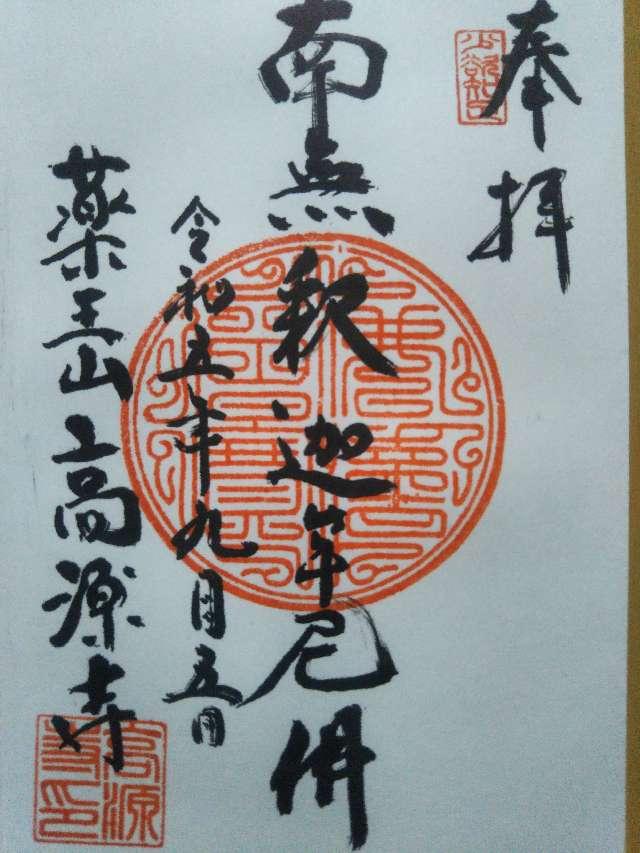 奉拝
少欲知足
南無釈迦牟尼佛
令和五年九月五日
薬王山高源寺
高源寺印